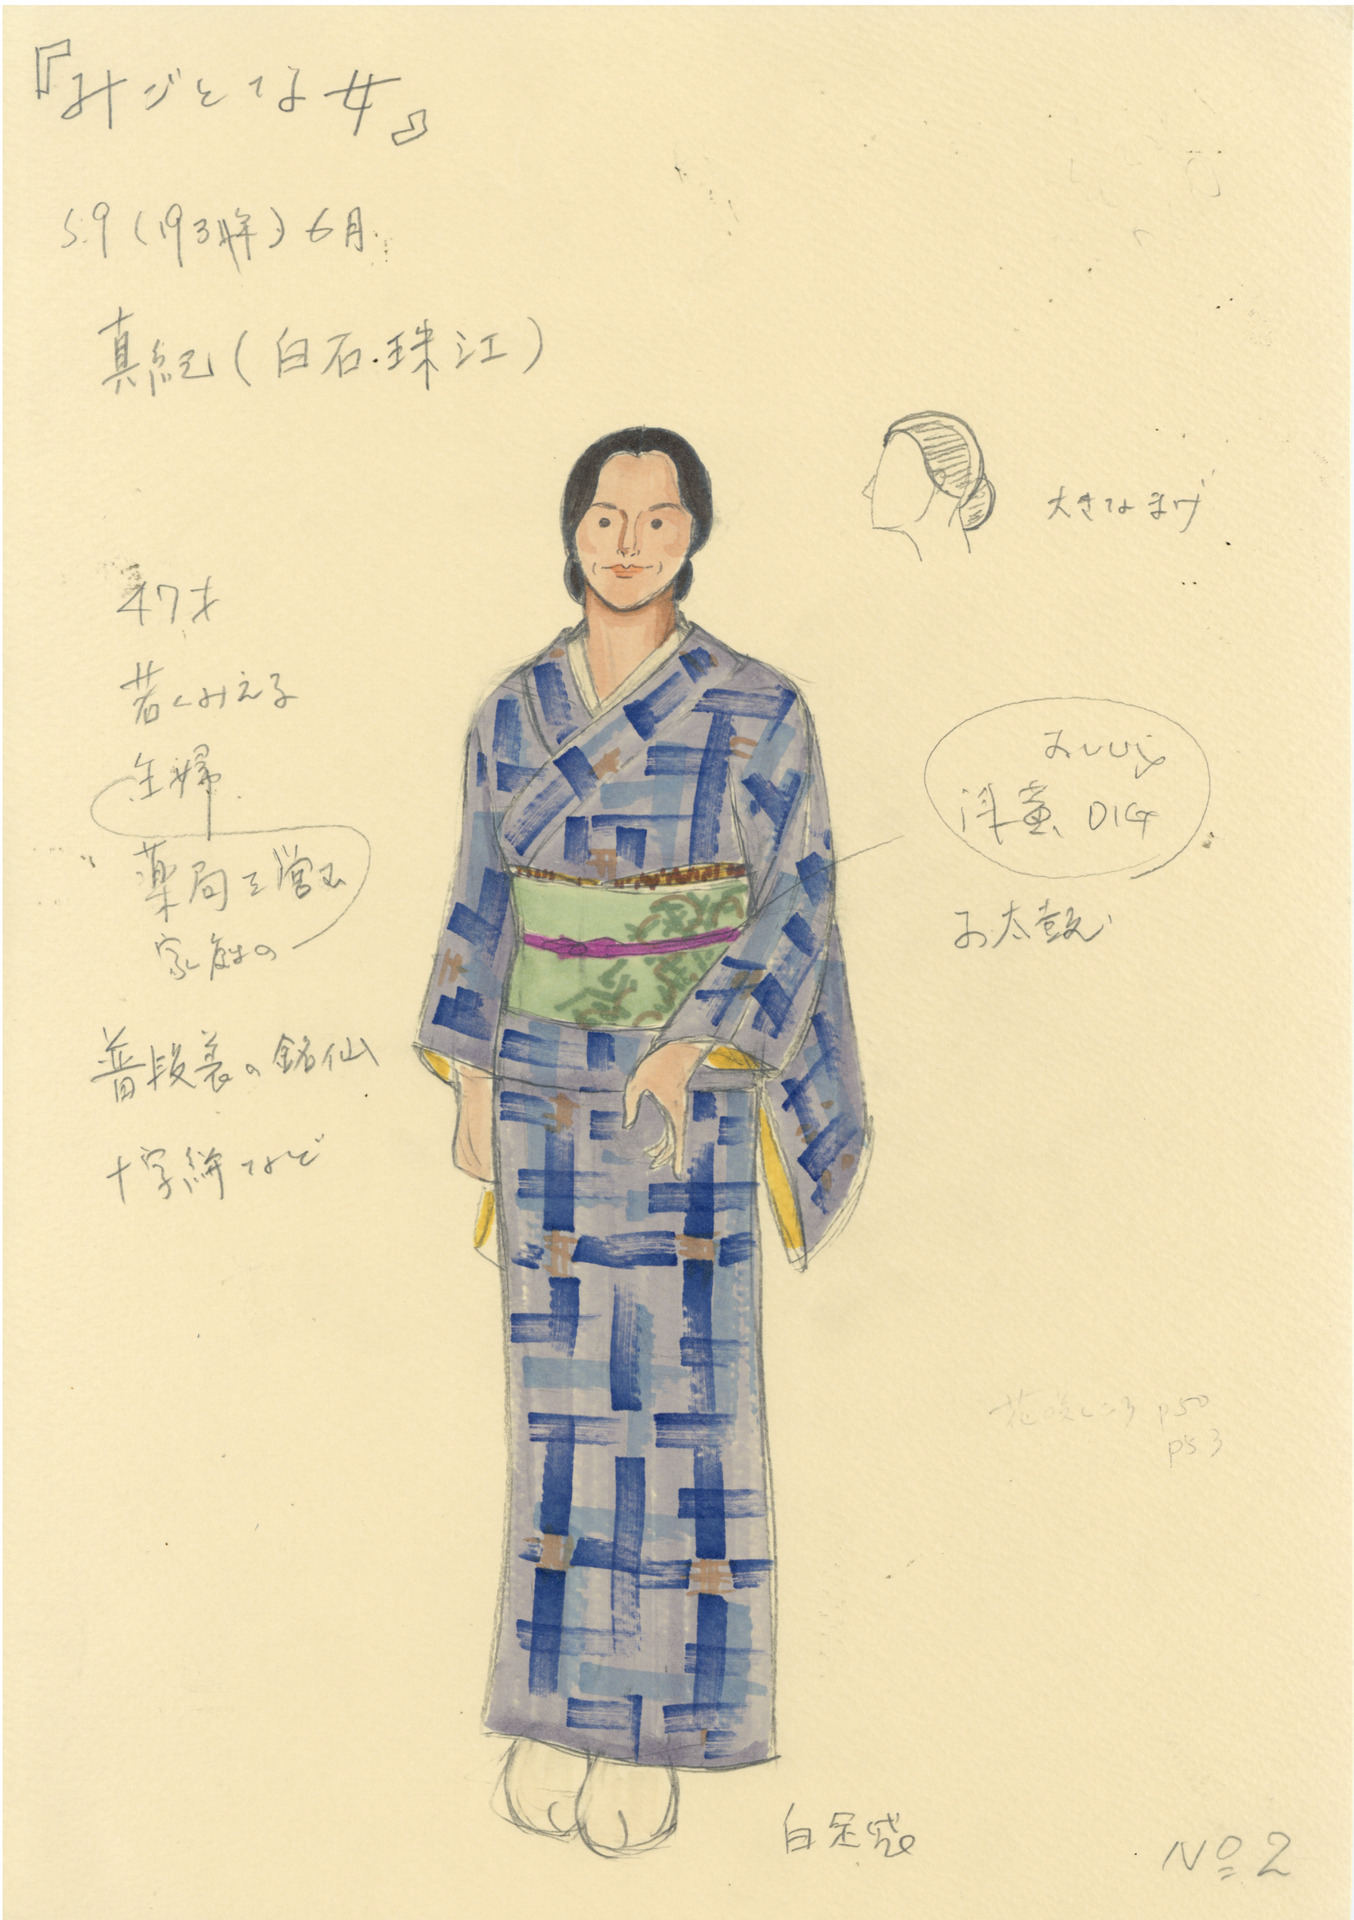 『みごとな女』
S.9(1934年)6月
真紀(白石.珠江)
大きなまげ
47才
若くみえる
主婦
薬局を営む
家庭の
普段着の銘仙
十字絣など
DIG
お太鼓
花咲くころ P50
P53
白足袋
No 2